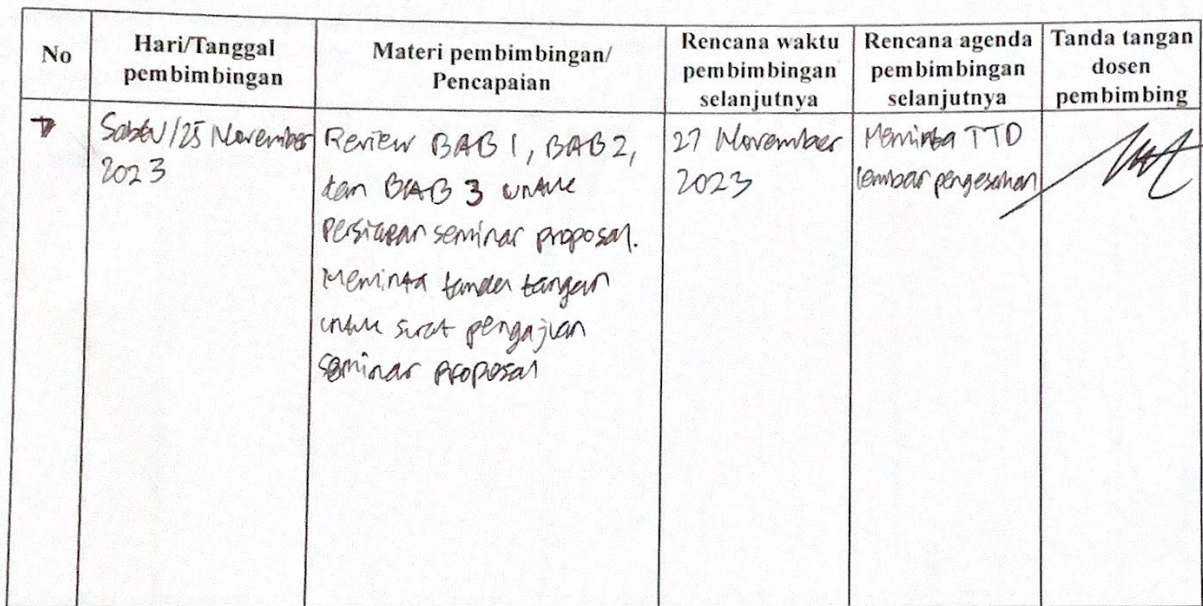 No
Hari/Tanggal
pembimbingan
Materi pembimbingan/
Pencapaian
Rencana waktu
pembimbingan
selanjutnya
Rencana agenda
pembimbingan
selanjutnya
Tanda tangan
dosen
pembimbing
Sabtu/25 November
2023
Review BAB 1, BAB 2,
dan BAB 3 untuk
Persiapan seminar proposal.
Meminta tanda tangan
untuk surat pengajuan
seminar proposal
27 November
2023
Meminta TTD
lembar pengesahan